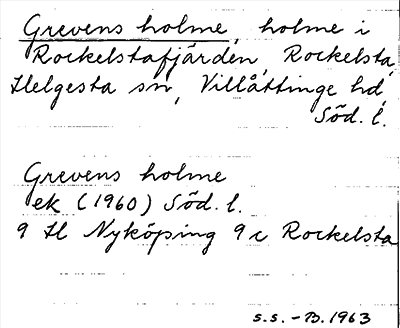 Grevens holme, holme i
Rockelstafjärden, Rockelsta,
Helgesta sn, Villåttinge hd,
Söd. l.
Grevens holme
ek (1960) Söd. l.
9 H Nyköping 9 c Rockelsta
s.s. - B. 1963